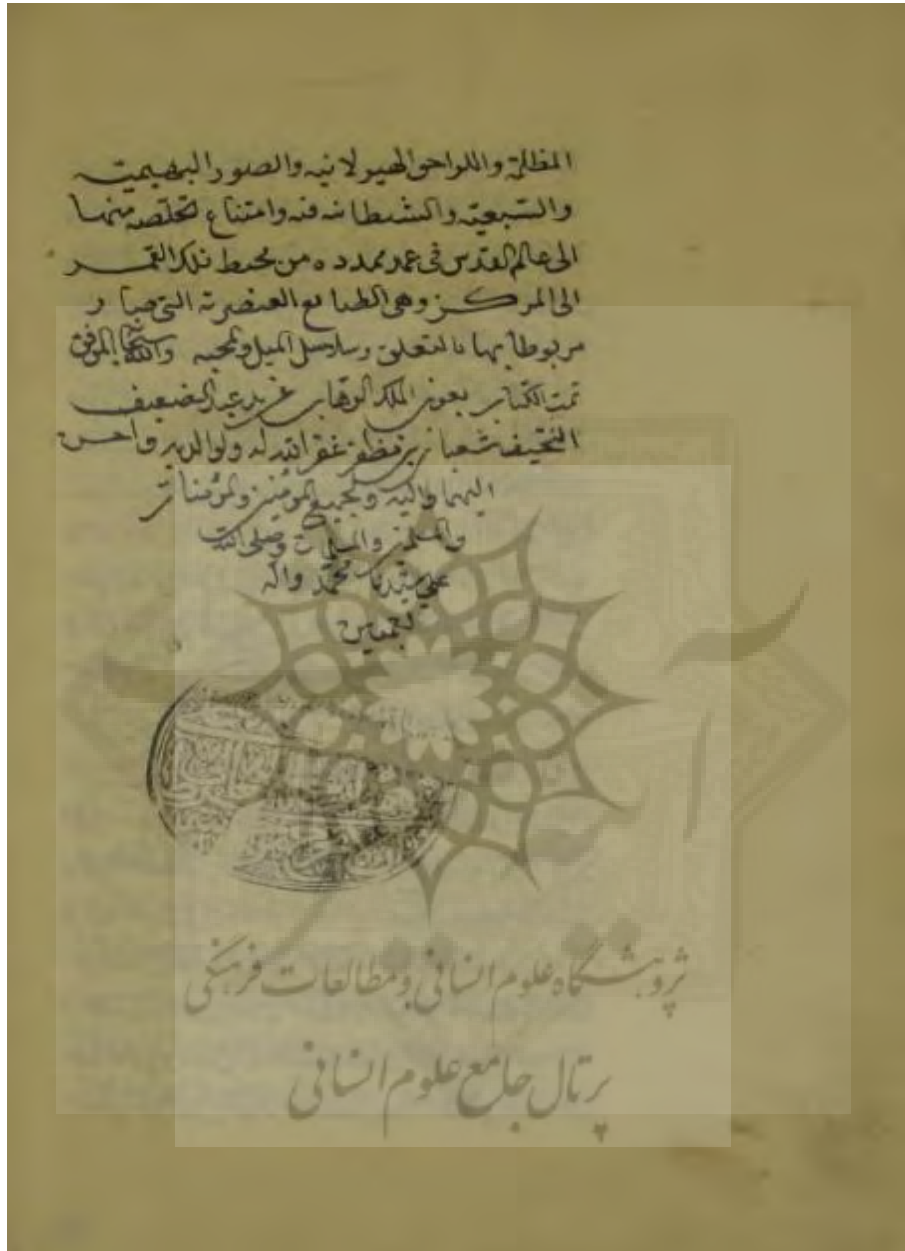 المظلمة واللواحق الهيولانيه والصور البهيمية
والسبعية والشيطانية فيه وامتناع تخلصه منها
الى عالم القدس فى عمد ممدده من محيط فلك القمر
الى المركز وهى الطبايع العنصرية التى صار
مربوطا بها بالتعلق وسلاسل الميل والمحبه والله الموفق
تمت الكتاب بعون الملك الوهاب عن يد عبد الضعيف
النحيف شعبان بن مظفر غفر الله له ولوالديه واحسن
اليهما واليه ولجميع المؤمنين والمؤمنات
والمسلمين والمسلمات وصلى الله
على سيدنا محمد واله
اجمعين
پژوهشگاه علوم انسانی و مطالعات فرهنگی
پرتال جامع علوم انسانی